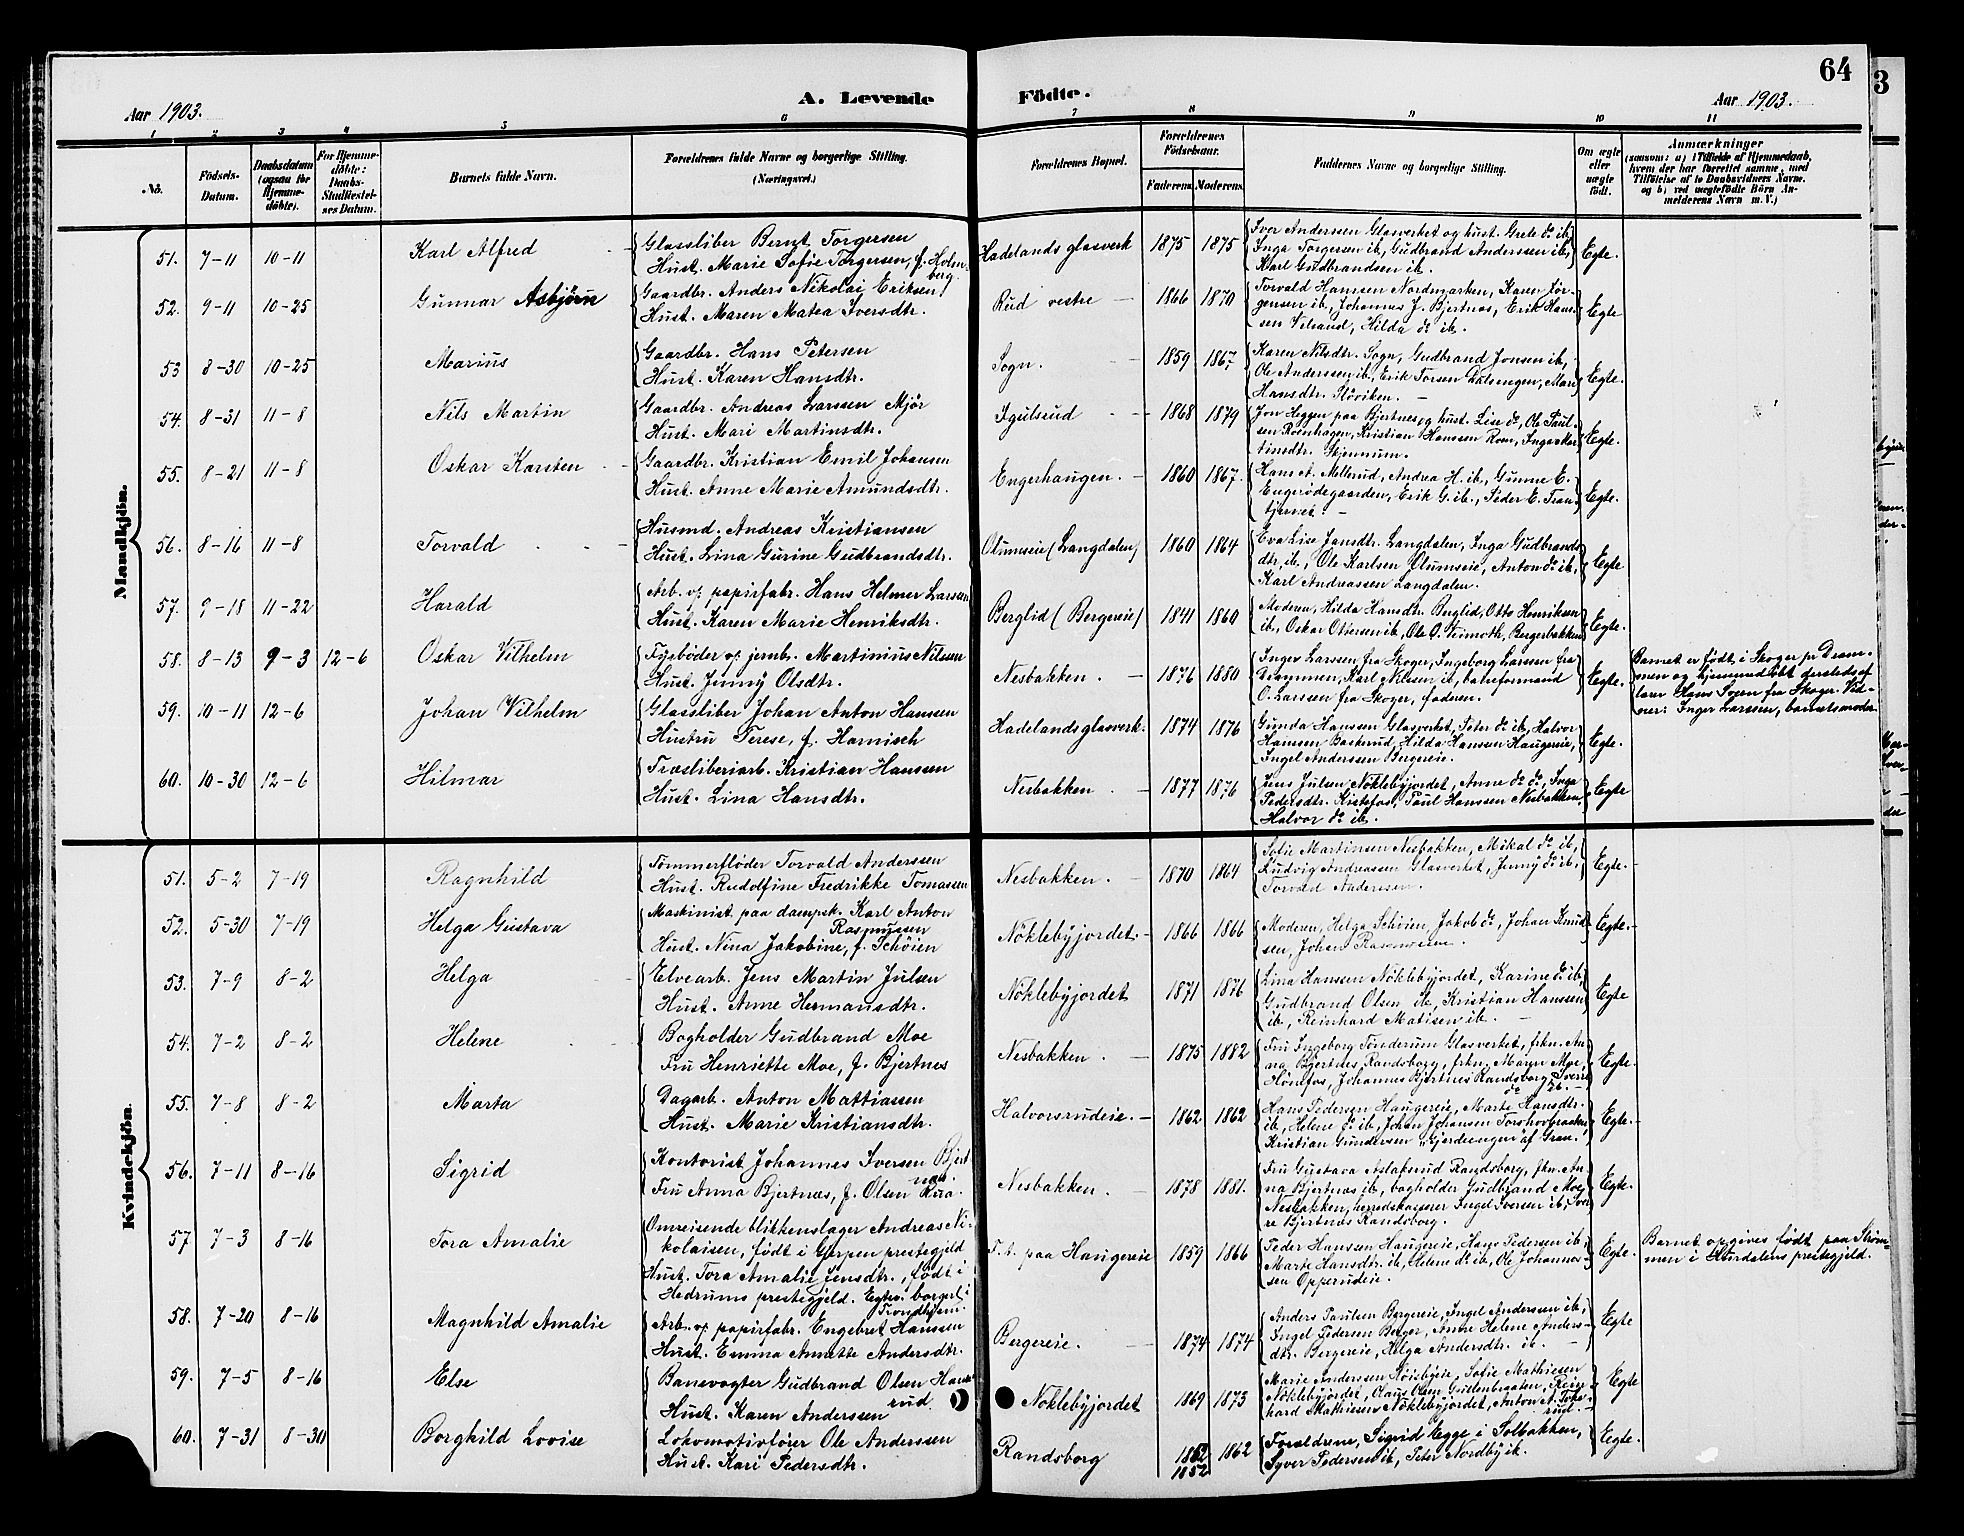 64
3
Aar 1903.
A. Levende Födte.
Aar 1903.
1 2 3 4 5 6 7 8 9 10 11
No.
Födsels-Datum.
Daabsdatum (ogsaa for Hjemme-döbte).
For Hjemme-döbte: Daabs-Stadfæstel-ses Datum.
Barnets fulde Navn.
Forældrenes fulde Navne og borgerlige Stilling. (Næringsvei.)
Forældrenes Bopæl.
Forældrenes Födselsaar.
Faderens. Moderens.
Faddernes Navne og borgerlige Stilling.
Om ægte eller uægte födt.
Anmærkninger
(saasom: a) i Tilfælde af Hjemmedaab,
hvem der har forrettet samme, med
Tilföielse af to Daabsvidners Navne,
og b) ved uægtefödte Börn An-
melderens Navn m. V.)
Mandkjön.
51. 7-11 10-11 Karl Alfred
Glassliber Bernt Torgersen
Hust. Marie Sofie Torgersen, f. Holm-
berg.
Hadelands glasverk 1875 1875
Iver Anderssen Glasverket og hust. Grete do ib,
Inga Torgersen ib, Gudbrand Anderssen ib,
Karl Gudbrandsen ib.
Egte.
52. 9-11 10-25 Gunnar Asbjørn
Gaardbr. Anders Nikolai Eriksen
Hust. Maren Matea Iversdtr.
Rud vestre 1866 1870
Torvald Hanssen Nordmarken, Karen Jør-
gensen ib, Johannes J. Bjertnes, Erik Hans-
sen Velsand, Hilda do ib.
Egte
53 8-30 10-25 Marius
Gaardbr. Hans Petersen
Hust. Karen Hansdtr.
Sogn. 1859 1867.
Karen Nilsdtr. Sogn, Gudbrand Jonsen ib,
Ole Anderssen ib, Erik Torsen Dalsengen, Mari
Hansdtr. Røviken.
Egte.
54. 8-31 11-8 Nils Martin
Gaardbr. Andreas Larssen Mjør
Hust. Mari Martinsdtr.
Igulsrud 1868 1879
Jon Heggen paa Bjertnes og hust. Lise do, Ole Paul-
sen Roenhagen, Kristian Hanssen Roen, Inga Mar
tinsdtr. Skjennum.
Egte.
55. 8-21 11-8 Oskar Karsten
Gaardbr. Kristian Emil Johansen
Hust. Anne Marie Amundsdtr.
Engerhaugen. 1860 1867.
Hans A. Mellerud, Andrea H. ib, Gunne E.
Engerødegaarden, Erik G. ib., Peder E. Tran-
tjernet.
Egte.
56. 8-16 11-8 Torvald
Husmd. Andreas Kristiansen
Hust. Lina Gurine Gudbrandsdtr.
Olumseie (Langdalen) 1860 1864
Eva Lise Jansdtr. Langdalen, Inga Gudbrands
dtr, ib., Ole Karlsen Olumseie, Anton do ib,
Karl Andreassen Langdalen.
Egte
57. 9-18 11-22 Harald
Arb. v. papirfabr. Hans Helmer Larssen
Hust. Karen Marie Henriksdtr.
Berglid (Bergereie) 1841 1860
Moderen, Hilda Hansdtr. Berglid, Otto Henriksen
ib., Oskar Ottersen ib, Ole O. Veimoth, Bergerbakken
Egte.
58. 8-13 9-3 12-6 Oskar Vilhelm
Fyrbøder v. jernb. Martinius Nilsen
Hust. Jenny Olsdtr.
Nesbakken. 1876 1880
Inger Larssen fra Skoger, Ingeborg Larssen fra
Drammen, Karl Nilsen ib, baneformand
O. Larssen fra Skoger, faderen.
Egte.
Barnet er født i Skoger pr Dram-
men og hjemmedøbt dersteds af
lærer Hans Sveen fra Skoger. Vid-
ner: Inger Larssen, barnets moder
59. 10-11 12-6 Johan Vilhelm
Glassliber Johan Anton Hanssen
Hustru Terese, f. Harnisch
Hadelands glasverk. 1874 1876
Gunda Hanssen Glasverket, Peter do ib, Halvor
Hanssen Baskerud, Hilda Hanssen Haugereie,
Ingel Anderssen Bergereie.
Egte.
60. 10-30 12-6 Hilmar
Træsliberiarb. Kristian Hanssen
Hust. Lina Hansdtr.
Nesbakken 1877 1876
Jens Julsen Nøklebyjordet, Anne do do, Inga
Pedersdtr. Kistefos, Paul Hanssen Nesbakken,
Halvor do ib.
Egte
Kvindekjön.
51. 5-2 7-19 Ragnhild
Tømmerfløder Torvald Anderssen
Hust. Rudolfine Fredrikke Tomassen
Nesbakken. 1870 1864
Sofie Martinsen Nesbakken, Mikal do ib,
Ludvig Andreassen Glasverket, Jenny do ib.
Torvald Anderssen.
Egte.
52. 5-30 7-19 Helga Gustava
Maskinist paa dampsk. Karl Anton
Rasmussen
Hust. Nina Jakobine, f. Schøien
Nøklebyjordet 1866 1866
Moderen, Helga Schøien, Jakob do, Johan Knud-
sen, Johan Rasmussen.
Egte.
53. 7-9 8-2 Helga
Elvearb. Jens Martin Julsen
Hust. Anne Hermansdtr.
Nøklebyjordet 1871 1876
Lina Hansen Nøklebyjordet, Karine do ib,
Gudbrand Olsen ib, Kristian Hanssen
ib, Reinhard Matisen ib.
Egte
54. 7-2 8-2 Helene
Bogholder Gudbrand Moe
Fru Henriette Moe, f. Bjertnes
Nesbakken. 1875 1882
Fru Ingeborg Tinderum Glasverket, frkn. An-
na Bjertnes Randsborg, frkn. Maren Moe,
Hønefos, Johannes Bjertnes Randsborg, Sverre
do ib.
Egte.
55. 7-8 8-2 Marta
Dagarb. Anton Mattiassen
Hust. Marie Kristiansdtr.
Halvorsrudeie. 1862 1862
Hans Pedersen Haugereie, Marte Hansdtr.
ib, Helene do ib, Johan Johansen Torshovbraaten
Kristian Gundersen "Gjerdeengen" af Gran.
Egte.
56. 7-11 8-16 Sigrid
Kontorist Johannes Iversen Bjert
nes.
Fru Anna Bjertnæs, f. Olsen Rua.
Nesbakken. 1878 1881.
Fru Gustava Aslaksrud Randsborg, fkn. An-
na Bjertnes ib, bogholder Gudbrand Moe
Nesbakken, herredskasserer Ingel Iversen ib, Sver
re Bjertnes Randsborg.
Egte.
57 7-3 8-16 Tora Amalie
Omreisende blikkenslager Andreas Ni-
kolaisen, født i Gjerpen prestegjeld
Hust. Tora Amalie Jensdtr., født i
Hedrums prestegjeld. Egtev. borgerl. i
Trondhjem.
T.t. paa Haugereie 1859 1866
Peder Hanssen Haugereie, Hans Pedersen ib,
Marte Hansdtr. ib, Helene do ib, Ole Johannes-
sen Opperudeie.
Egte.
Barnet opgives født paa Strøm-
men i Hurdalens prestegjeld.
58. 7-20 8-16 Magnhild Amalie
Arb. v. papirfabr. Engebret Hanssen
Hust. Emma Annette Andersdtr.
Bergereie. 1874 1874
Anders Paulsen Bergereie, Ingel Anderssen ib,
Ingel Pedersen Berger, Anne Helene Anders-
dtr. Bergereie, Helga Andersdtr. ib.
Egte
59. 7-5 8-16 Else
Banevogter Gudbrand Olsen Hans-
rud.
Hust. Karen Anderssen
Nøklebyjordet 1869 1873
Marie Anderssen Höisbyeie, Sofie Mathiesen
Nøklebyjordet, Claus Olsen Gullenbraaten, Rein-
hard Mathiesen Nøklebyjordet, Anton A.
rud.
Egte
60. 7-31 8-30 Borghild Lovise
Lokomotivfører Ole Anderssen
Hust. Kari Pedersdtr.
Randsborg 1862 1862
1852
Forældrene, Sigrid Egge i Solbakken,
Syver Pedersen ib, Peter Nordby ib.
Egte.